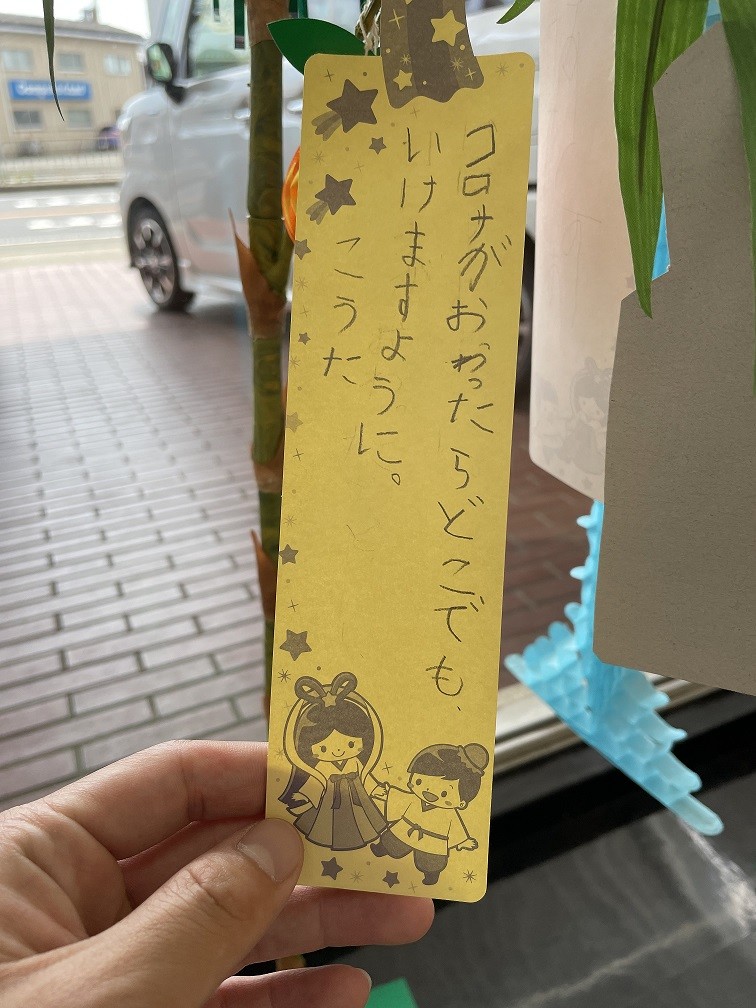 コロナがおわったらどこでも
いけますように。
こうた